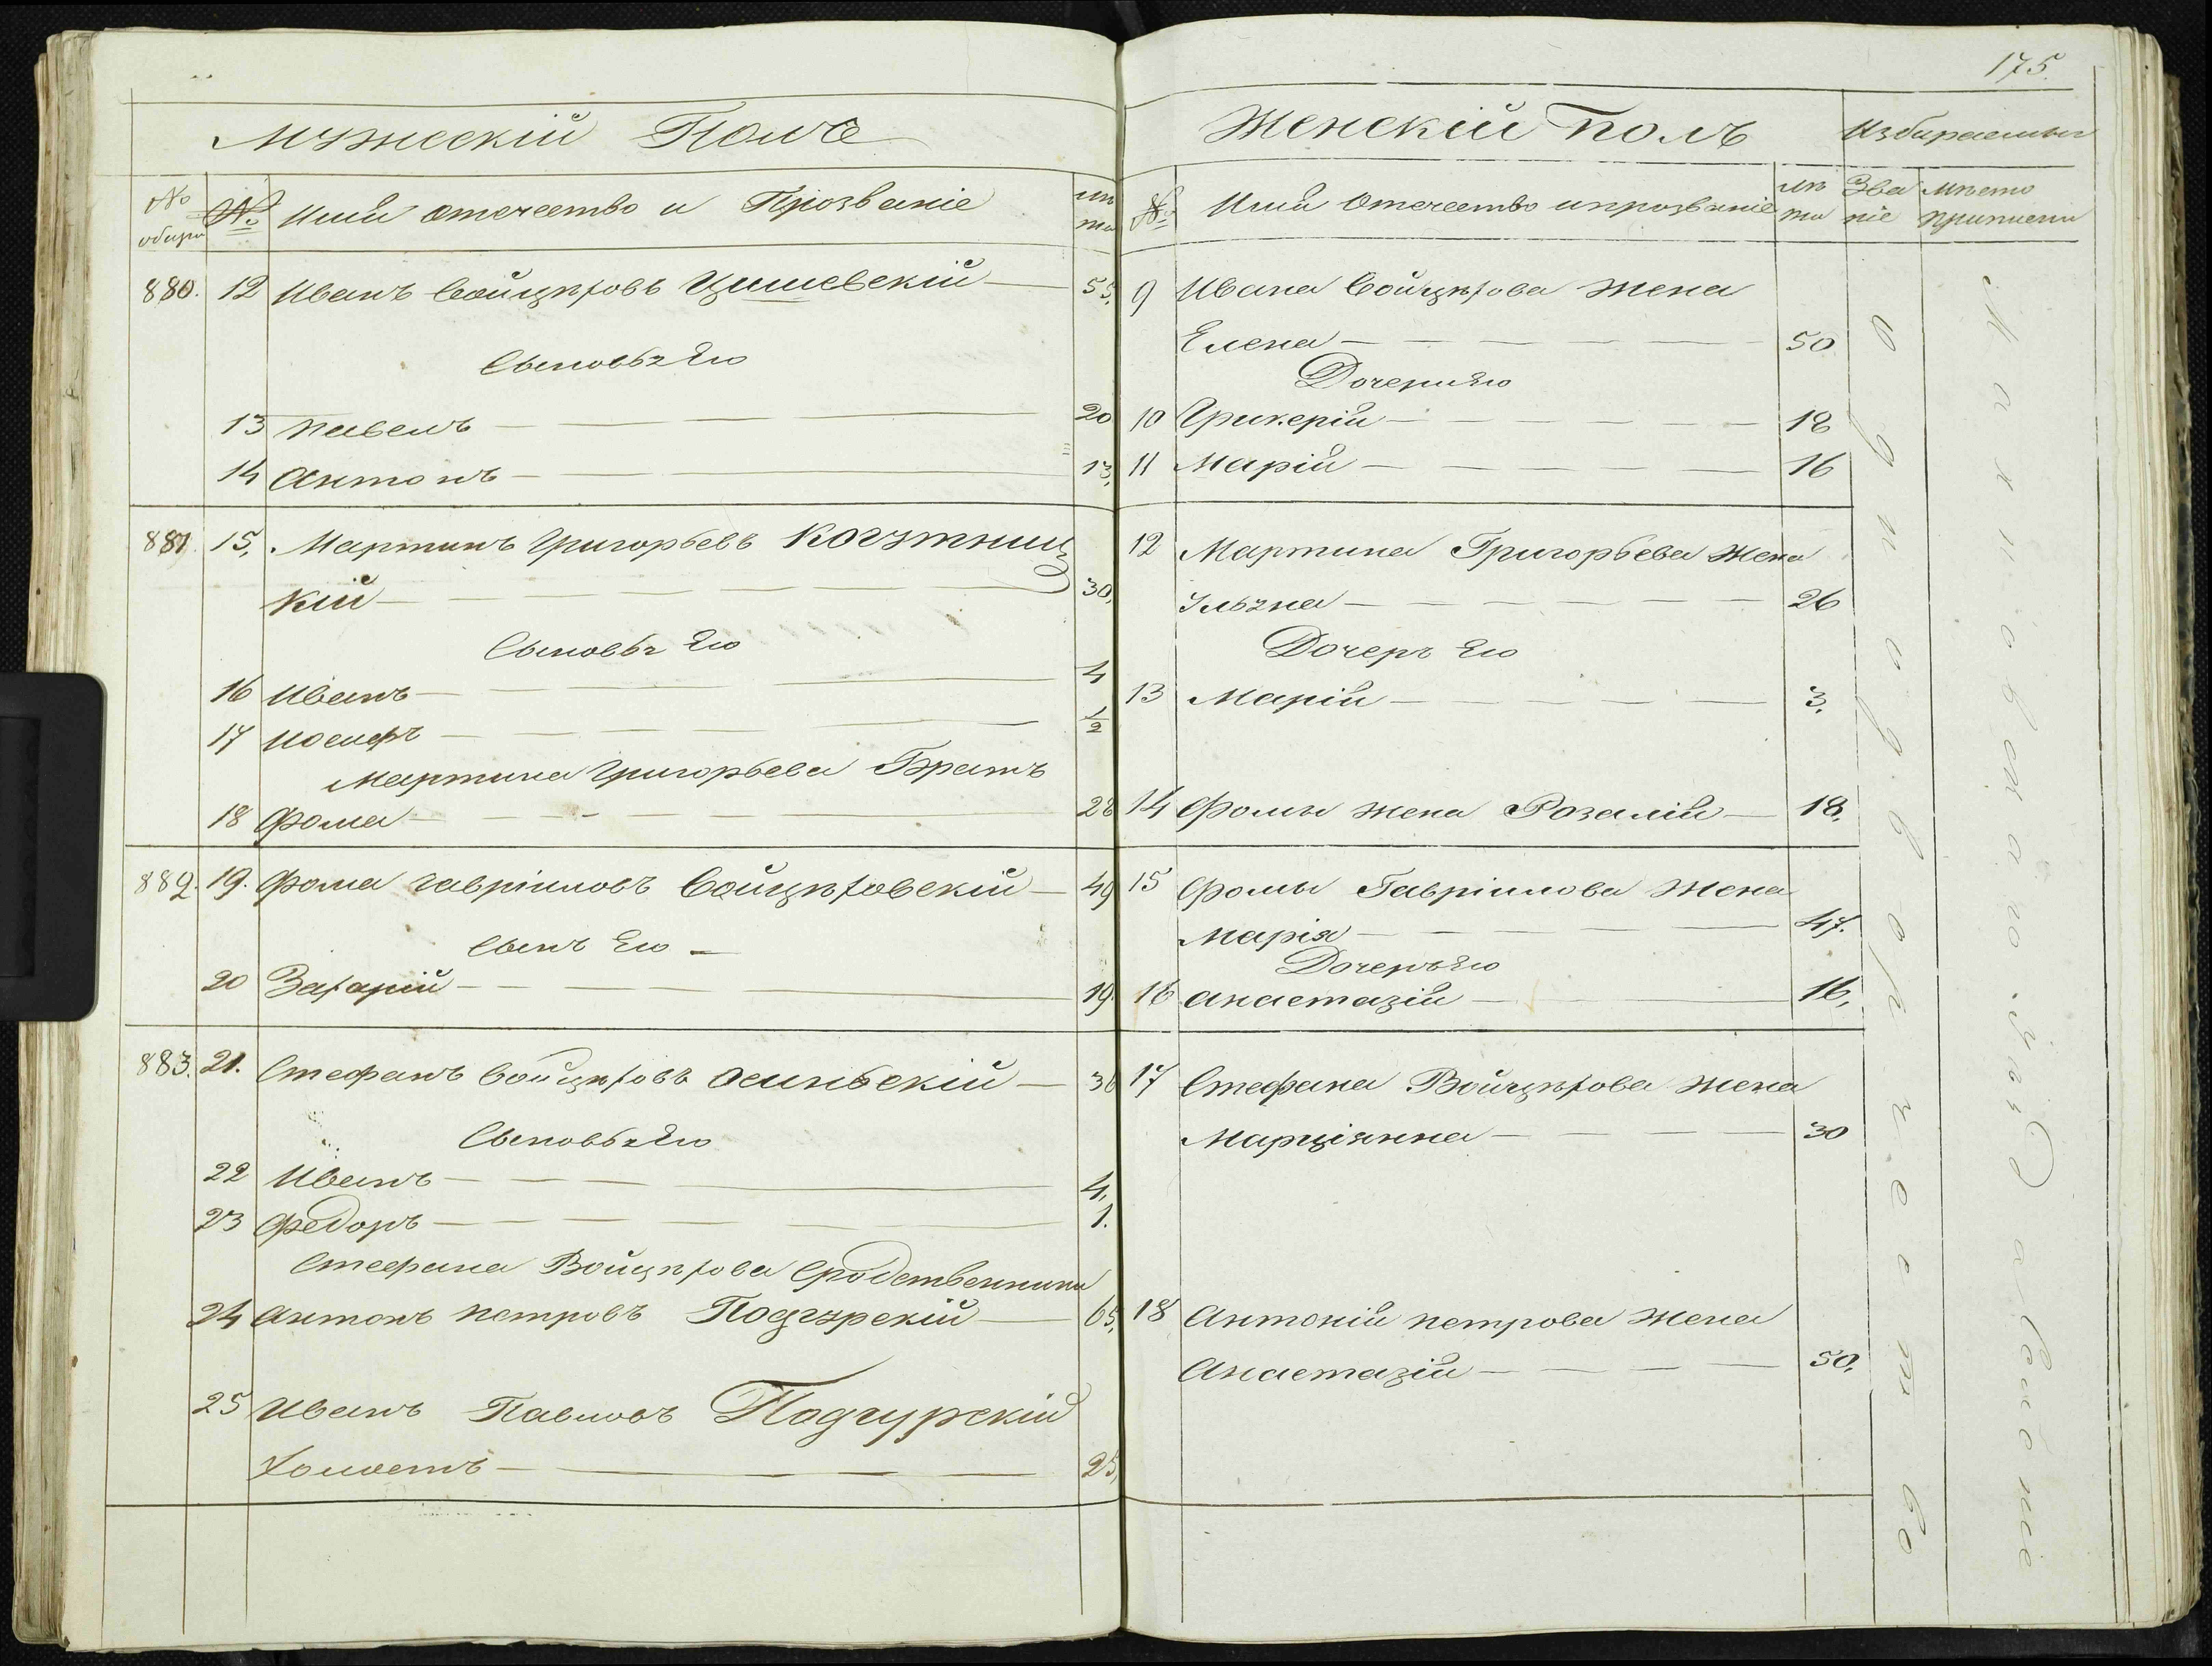 175.
Мужескій Полъ
№ общи
№
Имя отечество и Прозваніе
лѣта
880. 12 Иванъ Войцѣховъ Цишевскій 55.
Сыновья Его
13 Павелъ 20
14 Антонъ 13.
881 15. Мартинъ Григорьевъ Когутниц
кій 30.
Сыновья Его
16 Иванъ 4
17 Иосифъ 1/2
Мартина Григорьева Братъ
18 Фома 28
882. 19. Фома Гавріиловъ Войцѣховскій 49
Сынъ Его
20 Захарій 19
883. 21. Стефанъ Войцѣховъ Осинскій 36
Сыновья Его
22 Иванъ 4.
23 Федоръ 1.
Стефана Войцѣхова Сродственники
24 Антонъ Петровъ Подгурскій 65.
25 Иванъ Павловъ Подгурскій
Холостъ 25.
Женскій полъ
Избираемыя
№
Имя Отечество и прозваніе
лѣта
Званіе
Мѣсто приписки
9 Ивана Войцѣхова Жена
Елена 50
Дочери Его
10 Гликерія 18
11 Марія 16
12 Мартина Григорьева Жена
Ульяна 26
Дочерь Его
13 Марія 3.
14 Фомы жена Розалія 18.
15 Фомы Гавріилова Жена
Марія 47.
Дочерь Его
16 Анастазія 16.
17 Стефана Войцѣхова Жена
Марціянна 30
18 Антонія Петрова Жена
Анастазія 50.
Однодворчество